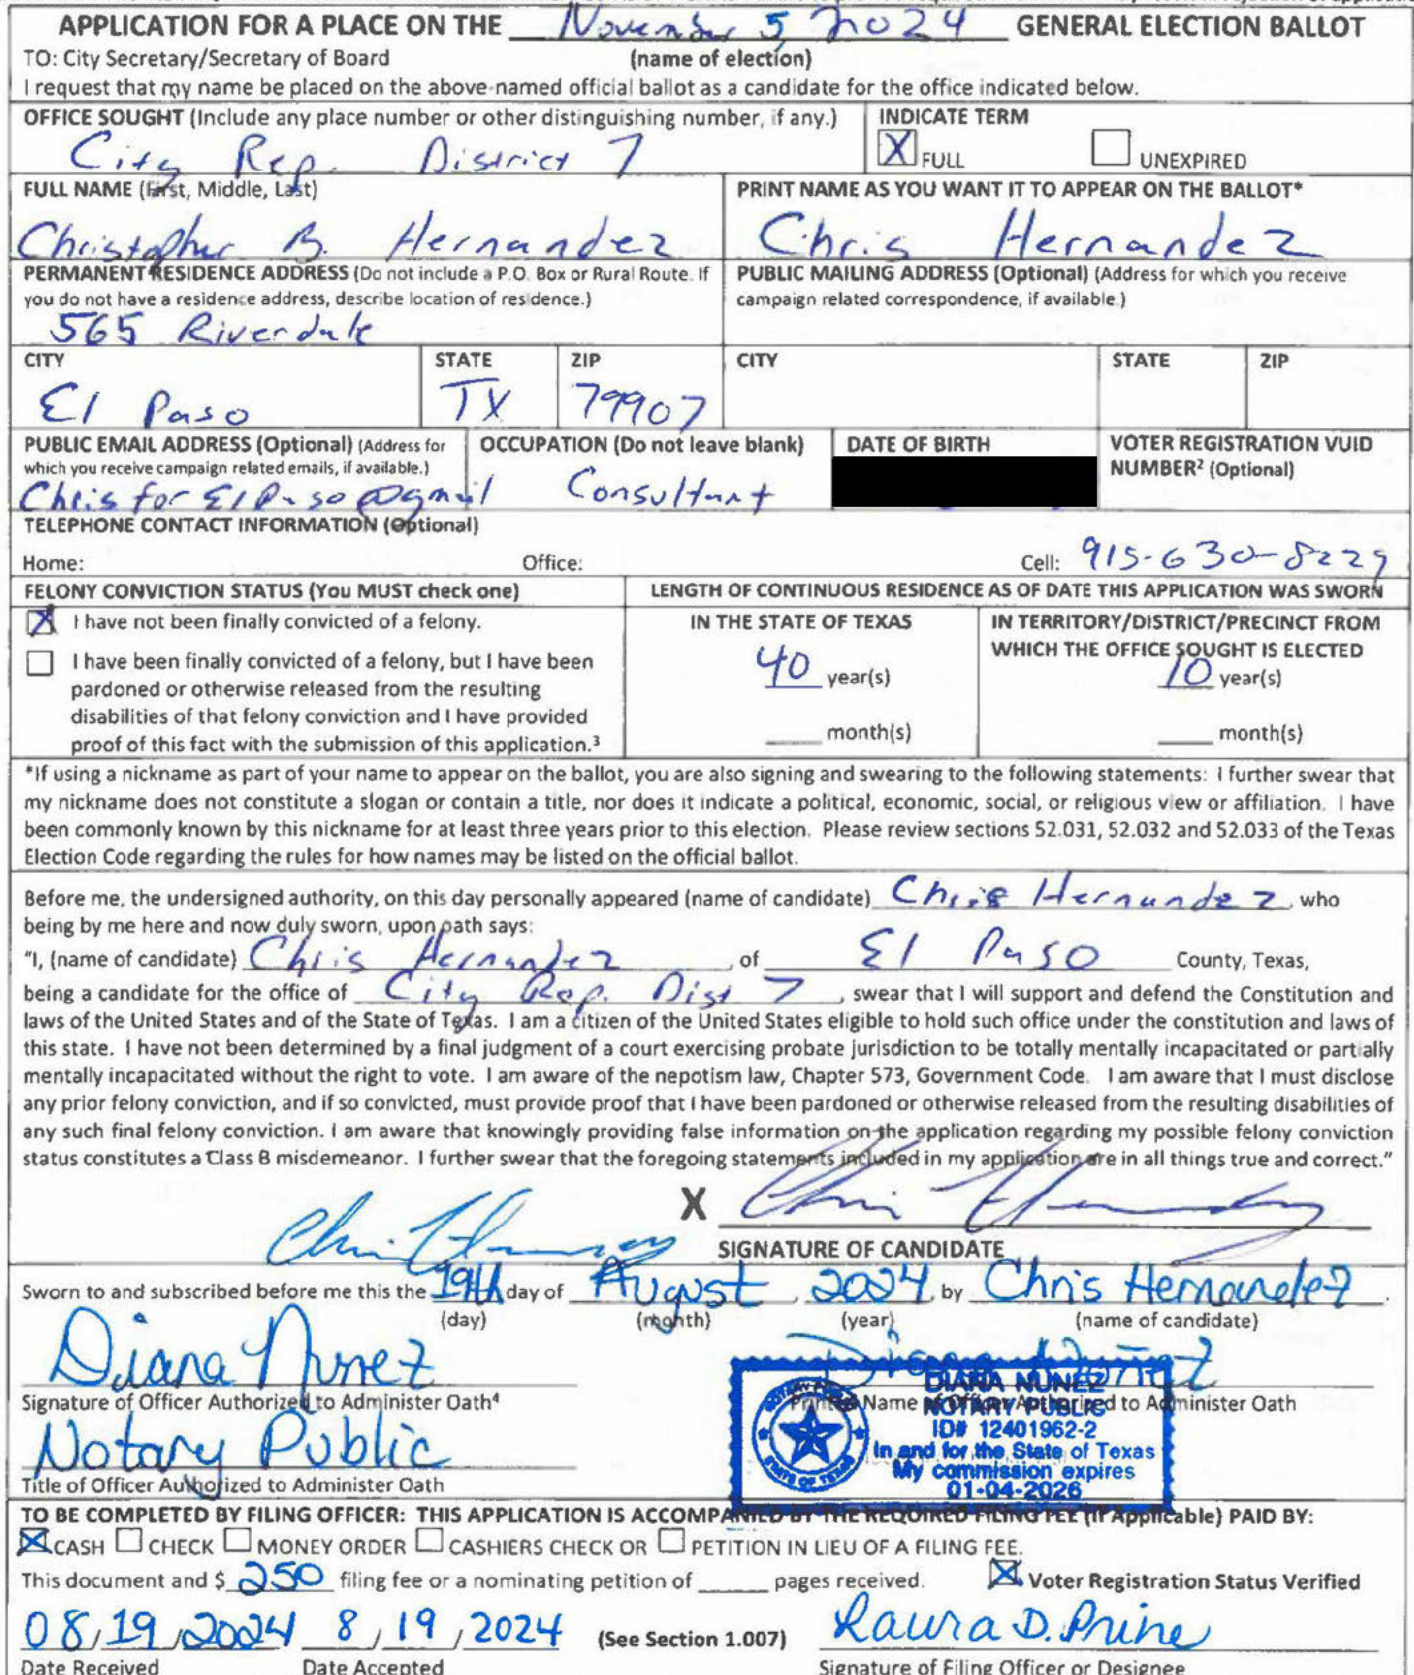 APPLICATION FOR A PLACE ON THE November 5, 2024 GENERAL ELECTION BALLOT
TO: City Secretary/Secretary of Board (name of election)
I request that my name be placed on the above-named official ballot as a candidate for the office indicated below.
OFFICE SOUGHT (Include any place number or other distinguishing number, if any.)
City Rep. District 7
INDICATE TERM
X FULL UNEXPIRED
FULL NAME (First, Middle, Last)
Christopher B. Hernandez
PRINT NAME AS YOU WANT IT TO APPEAR ON THE BALLOT*
Chris Hernandez
PERMANENT RESIDENCE ADDRESS (Do not include a P.O. Box or Rural Route. If
you do not have a residence address, describe location of residence.)
565 Riverdale
PUBLIC MAILING ADDRESS (Optional) (Address for which you receive
campaign related correspondence, if available.)
CITY STATE ZIP CITY STATE ZIP
El Paso TX 79907
PUBLIC EMAIL ADDRESS (Optional) (Address for
which you receive campaign related emails, if available.)
Chris for El Paso @gmail
OCCUPATION (Do not leave blank)
Consultant
DATE OF BIRTH
VOTER REGISTRATION VUID
NUMBER² (Optional)
TELEPHONE CONTACT INFORMATION (Optional)
Home: Office: Cell: 915-630-8229
FELONY CONVICTION STATUS (You MUST check one)
X I have not been finally convicted of a felony.
I have been finally convicted of a felony, but I have been
pardoned or otherwise released from the resulting
disabilities of that felony conviction and I have provided
proof of this fact with the submission of this application.³
LENGTH OF CONTINUOUS RESIDENCE AS OF DATE THIS APPLICATION WAS SWORN
IN THE STATE OF TEXAS
40 year(s)
month(s)
IN TERRITORY/DISTRICT/PRECINCT FROM
WHICH THE OFFICE SOUGHT IS ELECTED
10 year(s)
month(s)
*If using a nickname as part of your name to appear on the ballot, you are also signing and swearing to the following statements: I further swear that
my nickname does not constitute a slogan or contain a title, nor does it indicate a political, economic, social, or religious view or affiliation. I have
been commonly known by this nickname for at least three years prior to this election. Please review sections 52.031, 52.032 and 52.033 of the Texas
Election Code regarding the rules for how names may be listed on the official ballot.
Before me, the undersigned authority, on this day personally appeared (name of candidate) Chris Hernandez who
being by me here and now duly sworn, upon oath says:
"I, (name of candidate) Chris Hernandez, of El Paso County, Texas,
being a candidate for the office of City Rep. Dist 7, swear that I will support and defend the Constitution and
laws of the United States and of the State of Texas. I am a citizen of the United States eligible to hold such office under the constitution and laws of
this state. I have not been determined by a final judgment of a court exercising probate jurisdiction to be totally mentally incapacitated or partially
mentally incapacitated without the right to vote. I am aware of the nepotism law, Chapter 573, Government Code. I am aware that I must disclose
any prior felony conviction, and if so convicted, must provide proof that I have been pardoned or otherwise released from the resulting disabilities of
any such final felony conviction. I am aware that knowingly providing false information on the application regarding my possible felony conviction
status constitutes a Class B misdemeanor. I further swear that the foregoing statements included in my application are in all things true and correct."
X
SIGNATURE OF CANDIDATE
Sworn to and subscribed before me this the 19th day of August, 2024, by Chris Hernandez.
(day) (month) (year) (name of candidate)
Diana Nunez Diana Nuñez
Signature of Officer Authorized to Administer Oath⁴ Printed Name of Officer Authorized to Administer Oath
Notary Public
Title of Officer Authorized to Administer Oath
NOTARY PUBLIC
STATE OF TEXAS
DIANA NUNEZ
NOTARY PUBLIC
ID# 12401962-2
In and for the State of Texas
My commission expires
01-04-2026
TO BE COMPLETED BY FILING OFFICER: THIS APPLICATION IS ACCOMPANIED BY THE REQUIRED FILING FEE (If Applicable) PAID BY:
X CASH CHECK MONEY ORDER CASHIERS CHECK OR PETITION IN LIEU OF A FILING FEE.
This document and $ 250 filing fee or a nominating petition of pages received. X Voter Registration Status Verified
08/19/2024 8/19/2024 (See Section 1.007) Laura D. Prine
Date Received Date Accepted Signature of Filing Officer or Designee